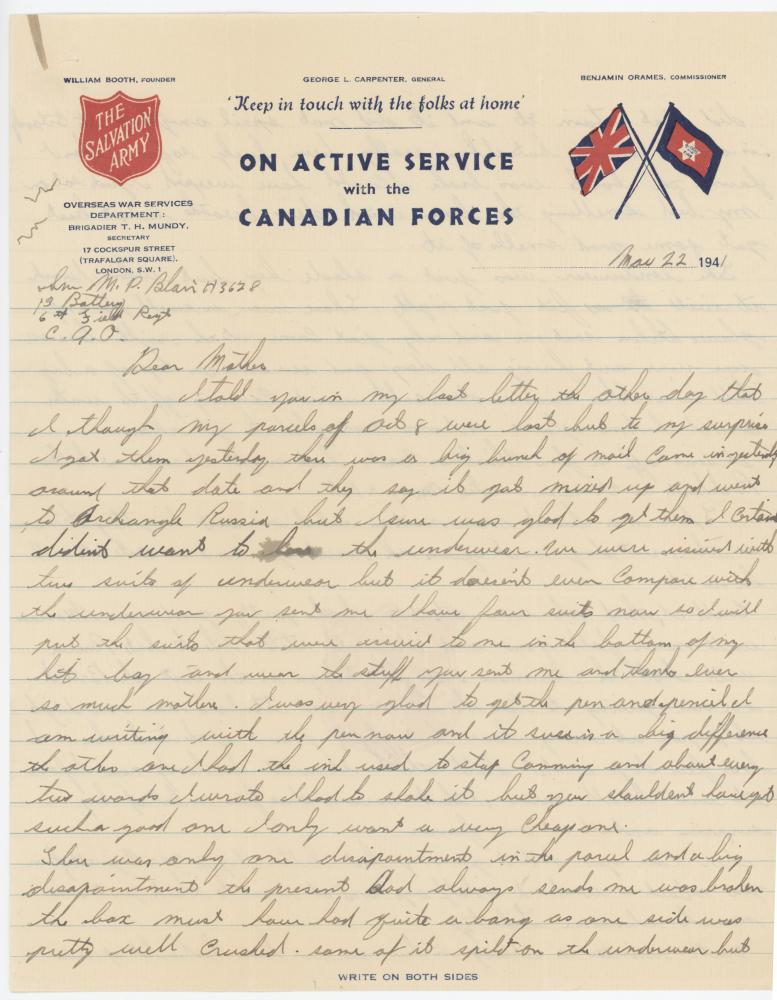 WILLIAM BOOTH, FOUNDER
GEORGE L. CARPENTER, GENERAL
BENJAMIN ORAMES, COMMISSIONER
'Keep in touch with the folks at home'
THE
SALVATION
ARMY
ON ACTIVE SERVICE
with the
CANADIAN FORCES
OVERSEAS WAR SERVICES
DEPARTMENT:
BRIGADIER T. H. MUNDY,
SECRETARY
17 COCKSPUR STREET
(TRAFALGAR SQUARE),
LONDON, S.W.1
Nov 22 1941
M. P. Blair H3628
13 Battery
6th Field Regt
C.A.O.
Dear Mother
I told you in my last letter the other day that
I though my parcels of Oct 8 were lost but to my surprise
I got them yesterday there was a big bunch of mail came in yesterday
around that date and they say it got mixed up and went
to Archangle Russia but I sure was glad to get them I certain
didint want to the underwear. We were issued with
two suits of underwear but it doesein't even compare with
the underwear you sent me I have four suits now so I will
put the suits that were issuied to me in the bottom of my
kit bag and wear the stuff you sent me and thanks ever
so much mother. I was very glad to get the pen and pencil I
am writing with the pen now and it sure is a big difference
the other one I had the ink used to stop comming and about every
two words I wrote I had to shake it but you shouldent have got
such a good one I only want a very cheap one.
Ther was only one disapointment in the parcel and a big
disapointment the present Dad always sends me was broken
the box must have had quite a bang as one side was
pretty well crushed. some of it spilt on the underwear but
WRITE ON BOTH SIDES